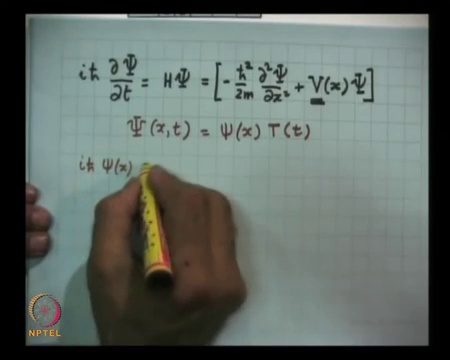 iħ ∂Ψ/∂t = HΨ = [- ħ²/2m ∂²Ψ/∂x² + V(x) Ψ]
Ψ(x,t) = ψ(x) T(t)
iħ ψ(x)
NPTEL